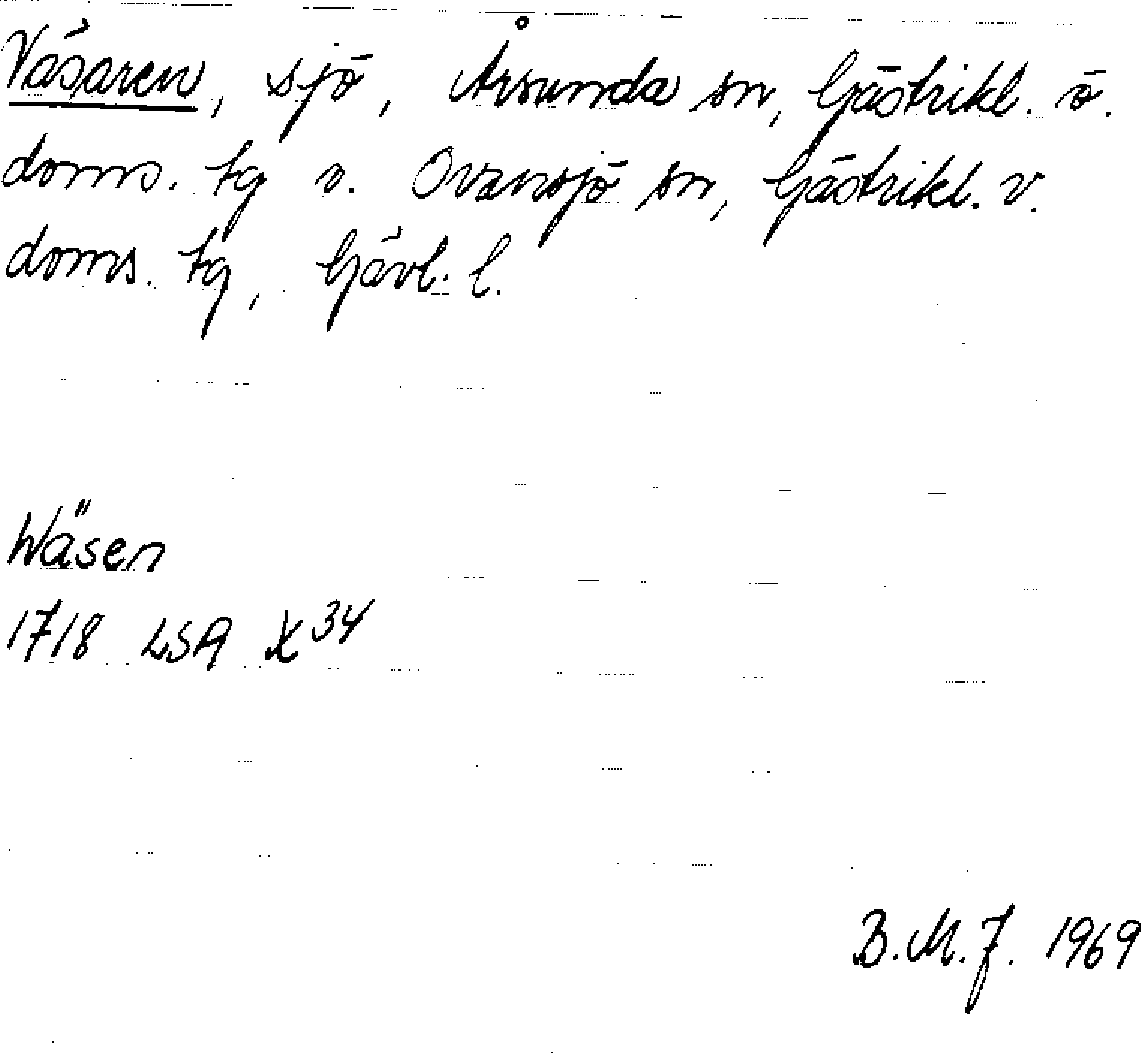 Väsaren, sjö, Årsunda sn, Gästrikl. ö.
doms. tg o. Ovansjö sn, Gästrikl. v.
doms. tg, Gävl. l.
Wäsen
1718 LSA X 34
B.M.J. 1969